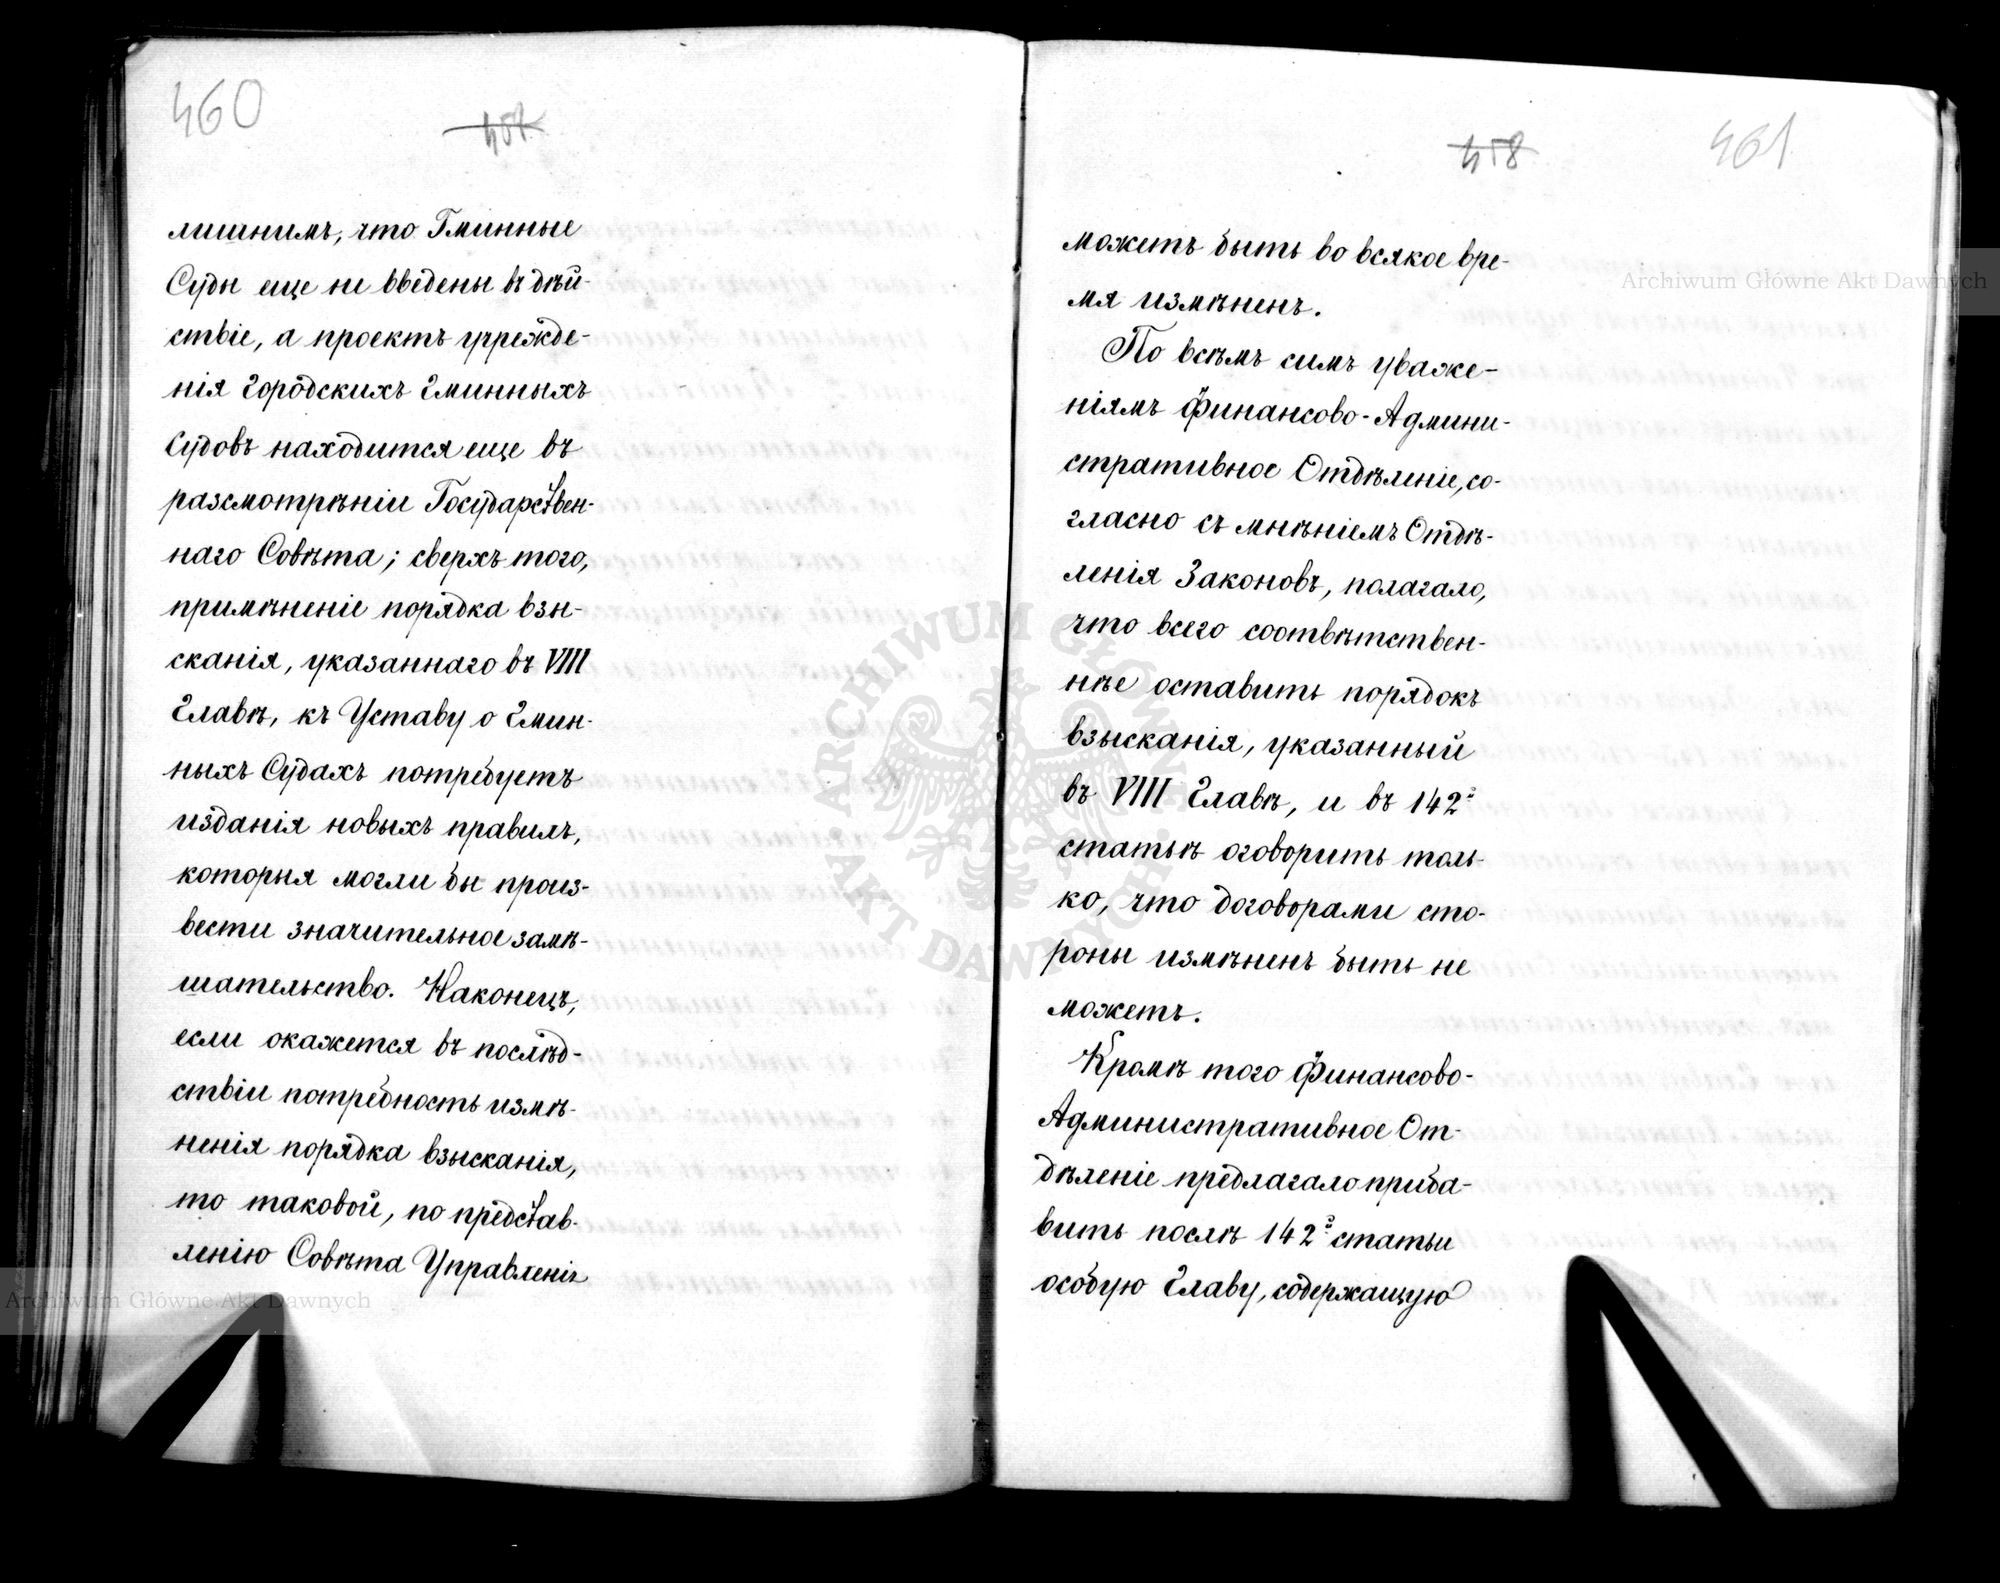 460
457
лишнимъ, что Гминные
Суды еще не введены въ дѣй-
ствіе, а проектъ учрежде-
нія городскихъ гминныхъ
Судовъ находится еще въ
разсмотрѣніи Государствен-
наго Совѣта; сверхъ того,
примѣненіе порядка взы-
сканія, указаннаго въ VIII
Главѣ, къ Уставу о Гмин-
ныхъ Судахъ потребуетъ
изданія новыхъ правилъ,
которыя могли бы произ-
вести значительное замѣ-
шательство. Наконецъ,
если окажется въ послѣд-
ствіи потребность измѣ-
ненія порядка взысканія,
то таковой, по представ-
ленію Совѣта Управленія
458
461
можетъ быть во всякое вре-
мя измѣненъ.
По всѣмъ симъ уваже-
ніямъ Финансово-Админи-
стративное Отдѣленіе, со-
гласно съ мнѣніемъ Отдѣ-
ленія Законовъ, полагало,
что всего соотвѣтствен-
нѣе оставить порядокъ
взысканія, указанный
въ VIII Главѣ, и въ 142й
статьѣ оговорить толь-
ко, что договорами сто-
роны измѣненъ быть не
можетъ.
Кромѣ того Финансово-
Административное От-
дѣленіе предлагало приба-
вить послѣ 142й статьи
особую Главу, содержащую
Archiwum Główne Akt Dawnych
Archiwum Główne Akt Dawnych
ARCHIWUM GŁÓWNE AKT DAWNYCH